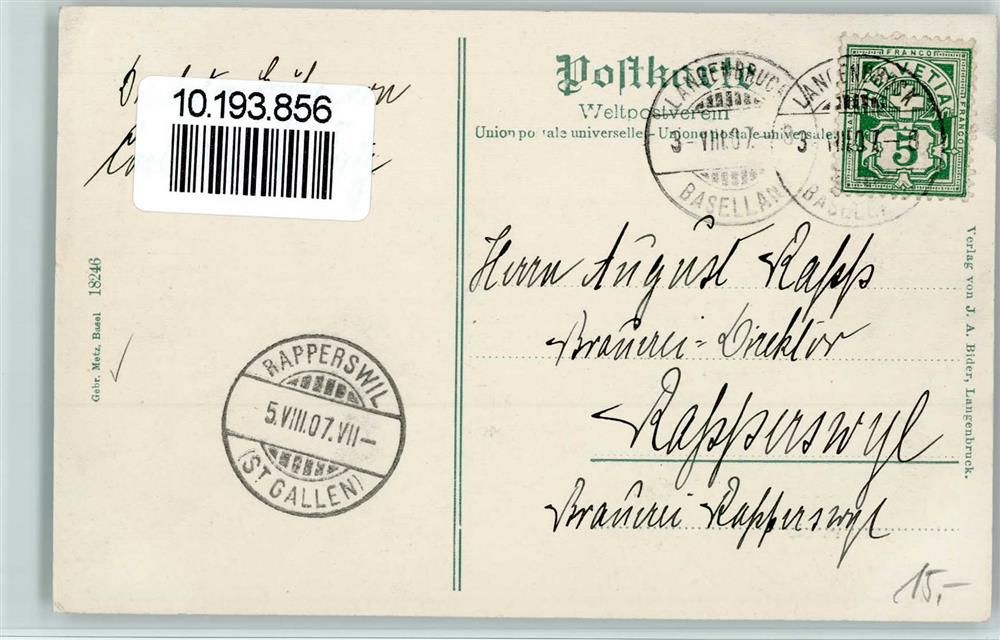 10.193.856
Postkarte
Weltpostverein
Union postale universelle - Union postale universale
LANGENBRUCK
3-VIII.07.-8
BASELLAND
LANGENBRUCK
3-VIII.07.-8
BASELLAND
FRANCO
HELVETIA
FRANCO
5
Herrn August Rapp
Brauerei-Direktor
Rapperswyl
Brauerei Rapperswyl
15,-
RAPPERSWIL
5.VIII.07.VII-
(ST GALLEN)
Gebr. Metz, Basel 18246
Verlag von J. A. Bider, Langenbruck.